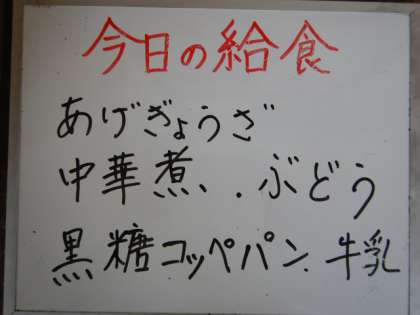 今日の給食
あげぎょうざ
中華煮、.ぶどう
黒糖コッペパン.牛乳